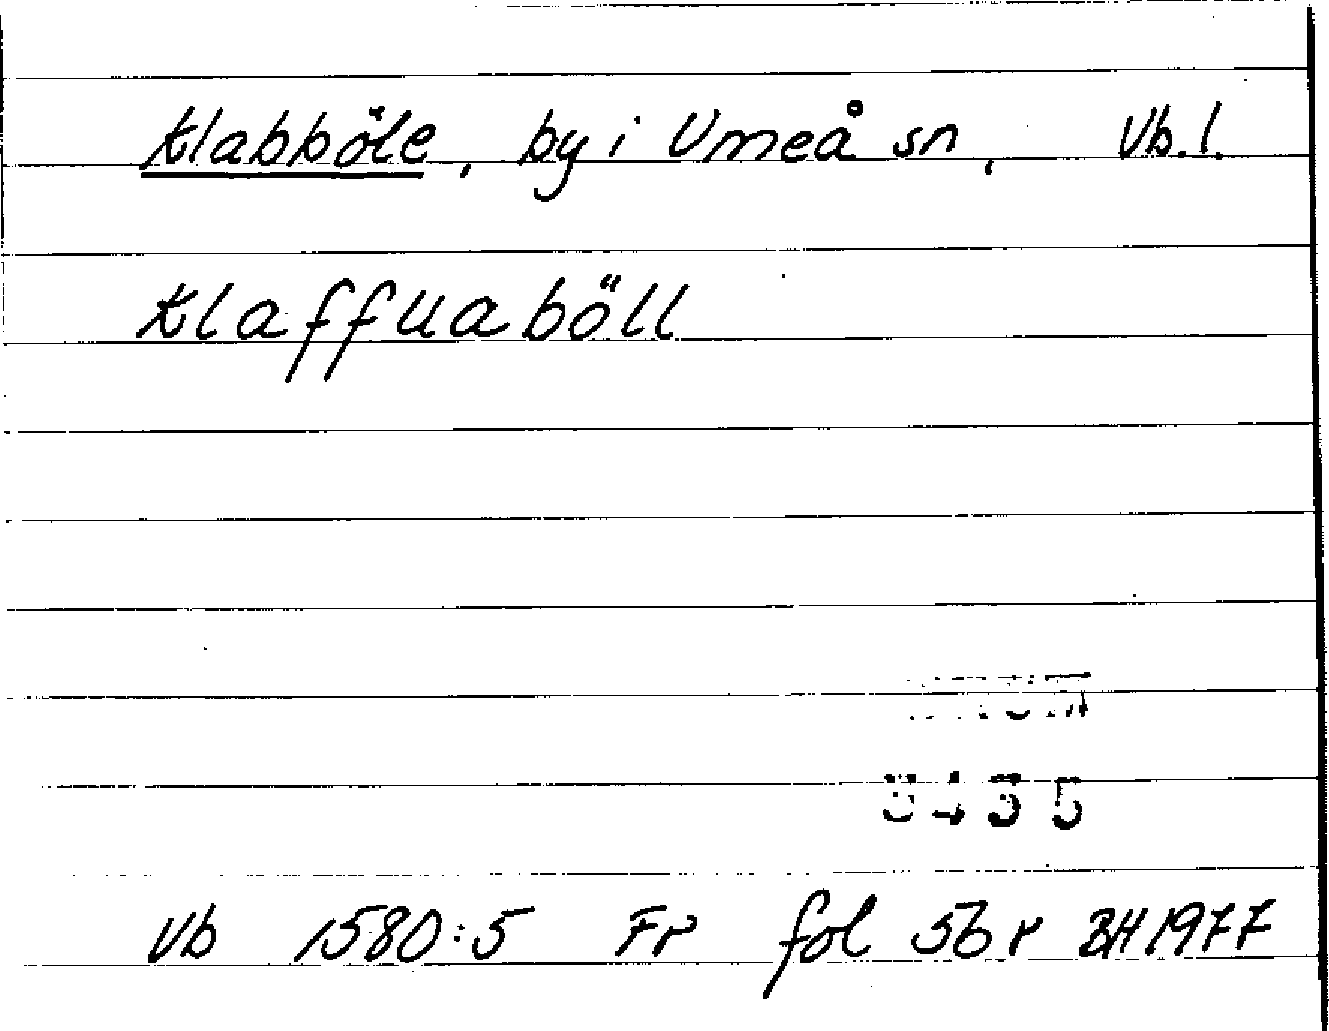 Klabböle, by i Umeå sn, Vb. l.
Klaffuaböll
Vb 1580:5 Fr fol 56 r BH 1977